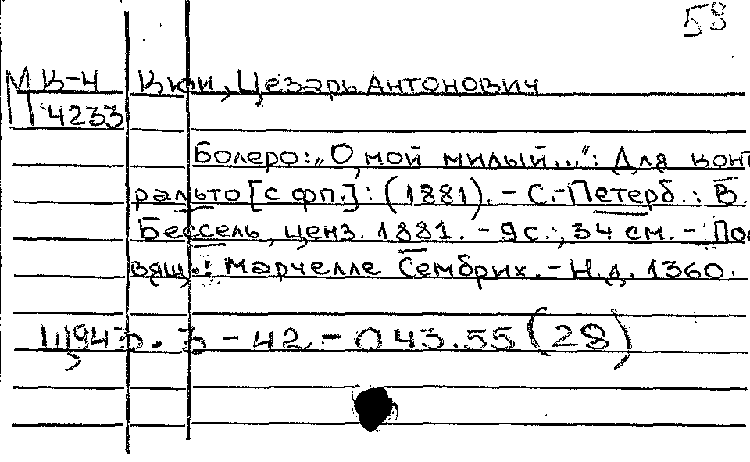 58
М К-4 Кюи, Цезарь Антонович
П 4233
Болеро: „О, мой милый...": Для конт
ральто [с фп.]: (1881). - С.-Петерб.: В.
Бессель, ценз. 1881. - 9 с.; 34 см. - Пос
вящ.: Марчелле Сембрих. - Н.д. 1360.
Щ943.3-42-043.55(28)